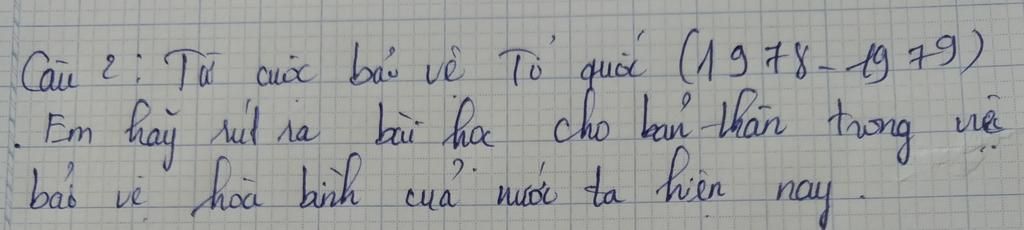 Câu 2: Từ cuộc bảo vệ Tổ quốc (1978-1979)
. Em hãy rút ra bài học cho bản thân trong việc
bảo vệ hoà bình của nước ta hiện nay.